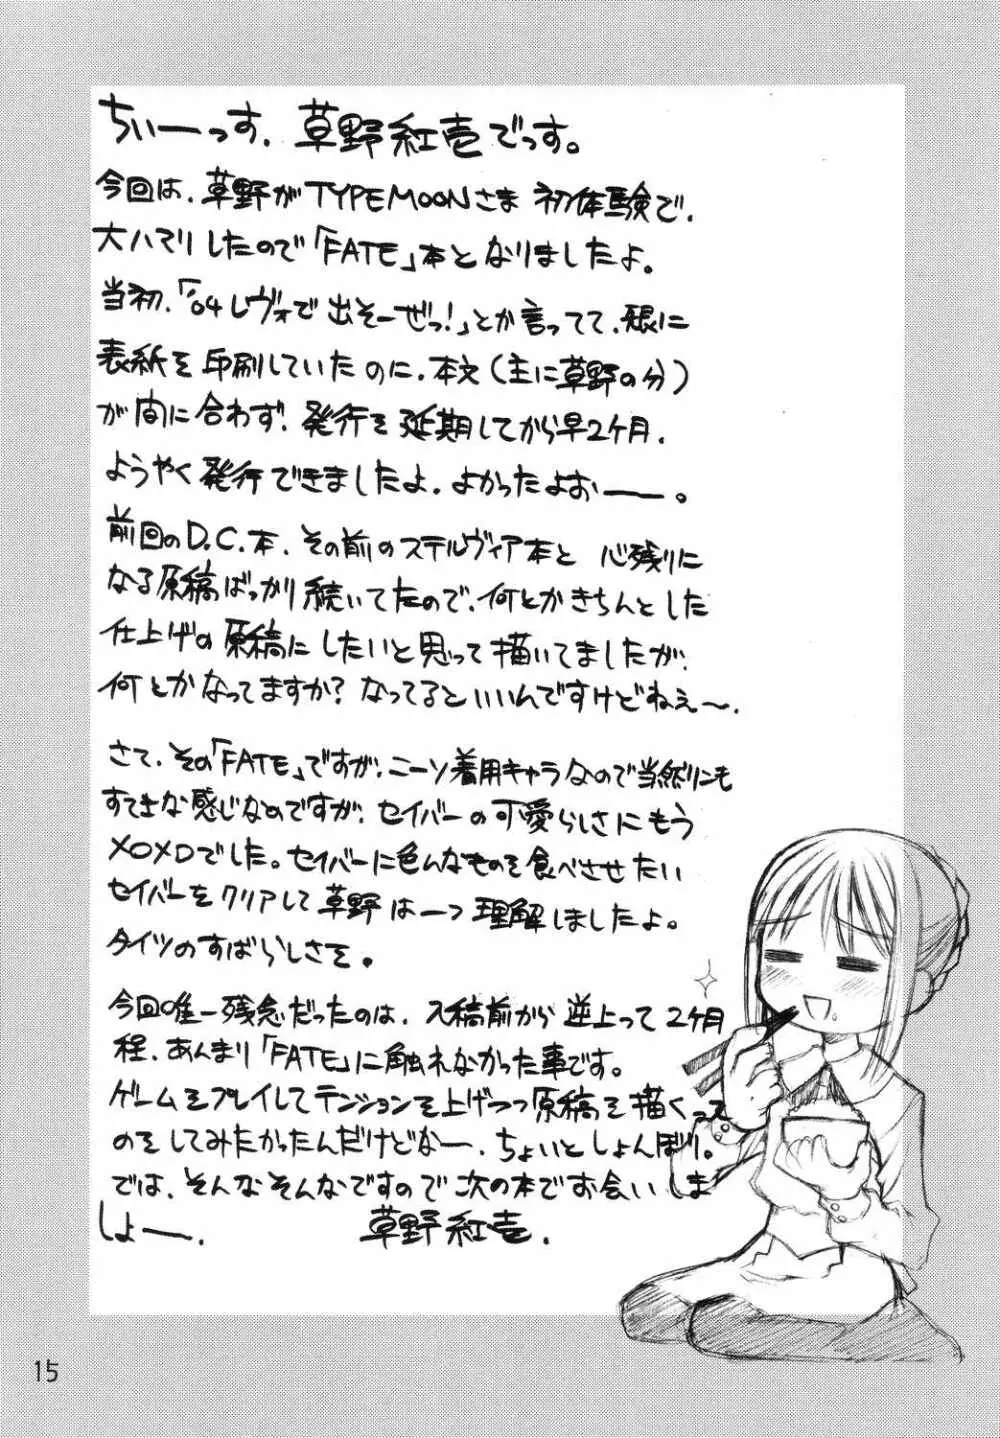 ちぃーっす、草野紅壱でっす。
今回は、草野がTYPEMOONさま 初体験で、
大ハマリしたので「FATE」本となりましたよ。
当初、「'04レヴォで出そーぜっ!」とか言ってて、既に
表紙を印刷していたのに、本文(主に草野の分)
が間に合わず、発行を延期してから早2ヶ月、
ようやく発行できましたよ、よかったよおー。
前回のD.C.本、その前のステルヴィア本と 心残りに
なる原稿ばっかり続いてたので、何とかきちんとした
仕上げの原稿にしたいと思って描いてましたが、
何とかなってますか?なってるといいんですけどねぇ〜、
さて、その「FATE」ですが、ニーソ着用キャラなので当然りんも
すてきな感じなのですが、セイバーの可愛らしさにもう
XOXOでした。セイバーに色んなものを食べさせたい
セイバーをクリアして草野は一つ理解しましたよ。
タイツのすばらしさを。
今回唯一残念だったのは、入稿前から逆上って2ヶ月
程、あんまり「FATE」に触れなかった事です。
ゲームをプレイしてテンションを上げつつ原稿を描くって
のをしてみたかったんだけどなー、ちょいとしょんぼり。
では、そんなそんなですので次の本でお会いしま
しょー、 草野紅壱.
15